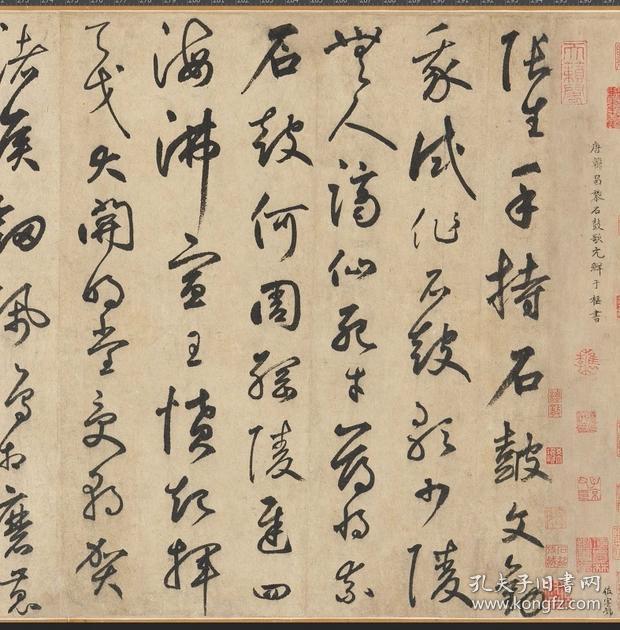 唐韓昌黎石鼓歌元鮮于樞書
張生手持石鼓文勸
我試作石鼓歌少陵
無人謫仙死才薄將奈
石鼓何周綱陵遲四
海沸宣王憤起揮
天戈大開明堂受朝賀
諸侯劍佩鳴相磨蒐
天籟閣
孔夫子旧书网